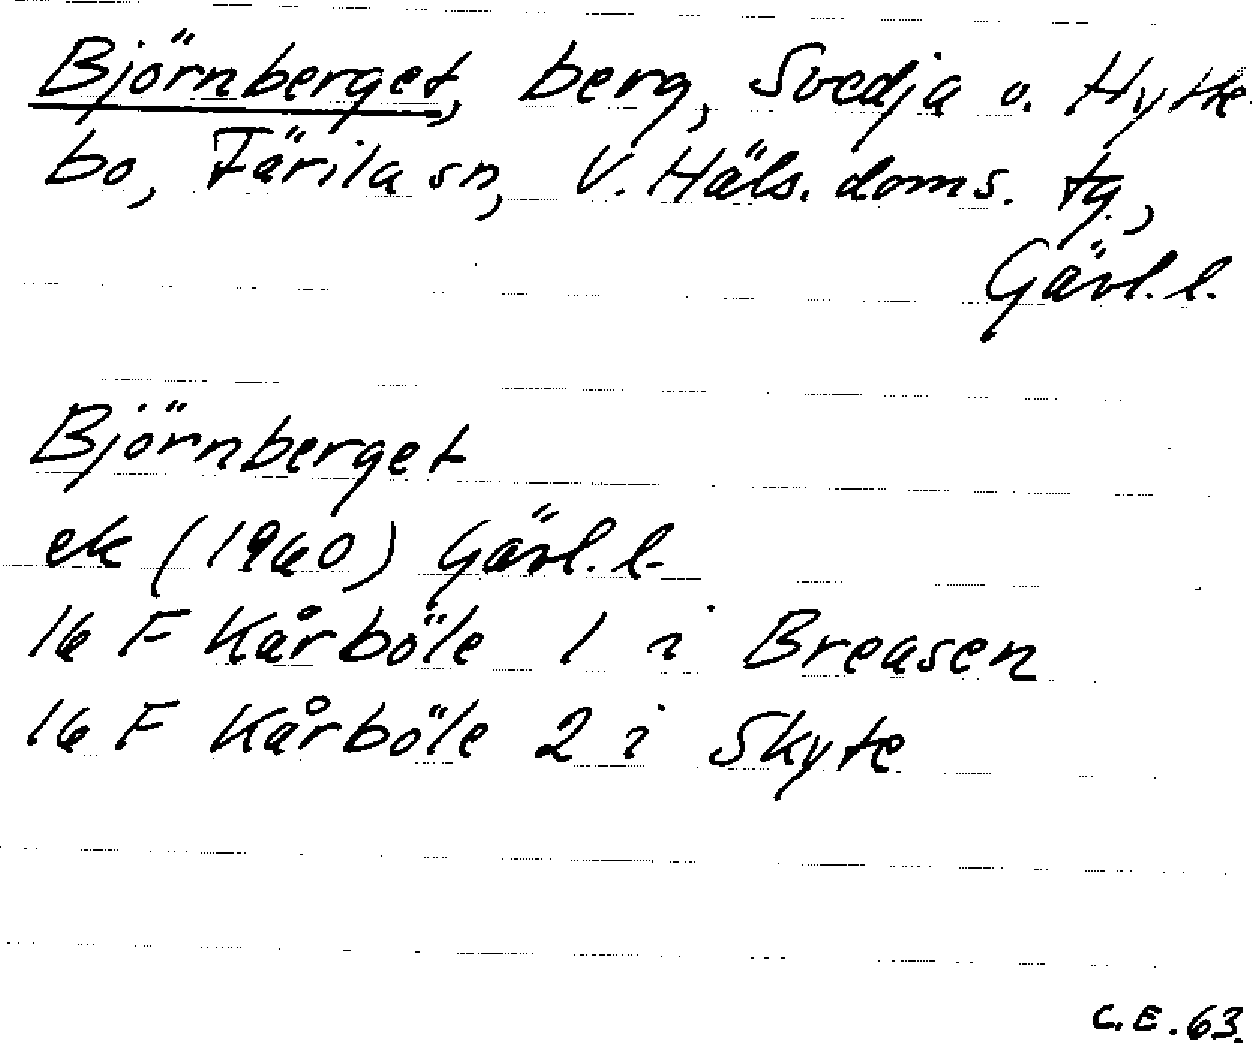 Björnberget, berg, Svedja o. Hytte-
bo, Färila sn, V. Häls. doms. tg.,
Gävl. l.
Björnberget
ek (1960) Gävl. l.
16 F Kårböle 1 i Breasen
16 F Kårböle 2 i Skyte
C.E. 63.